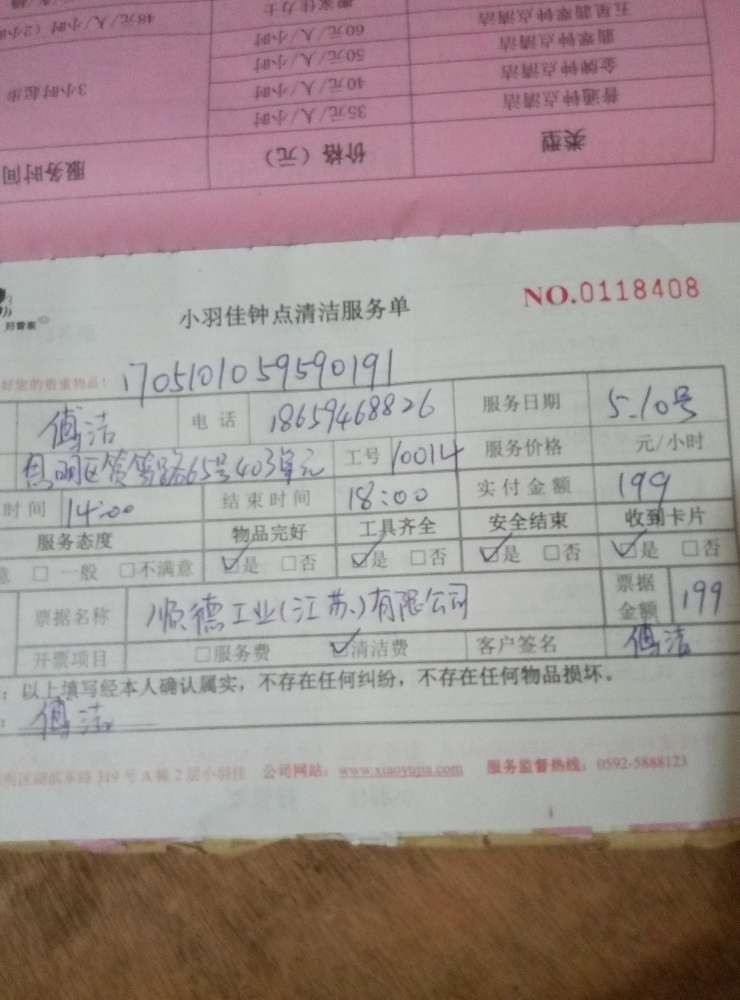 五星翡翠钟点清洁
翡翠钟点清洁 60元/人/小时
金牌钟点清洁 50元/人/小时
普通钟点清洁 40元/人/小时 3小时起步
35元/人/小时
类型 价格（元） 服务时间
小羽佳钟点清洁服务单 NO.0118408
好管家
好您的贵重物品! 1705101059590191
傅洁 电话 18659468826 服务日期 5.10号
思明区 65号403单元 工号 10014 服务价格 元/小时
时间 14:00 结束时间 18:00 实付金额 199
服务态度 物品完好 工具齐全 安全结束 收到卡片
意 □一般 □不满意 ☑是 □否 ☑是 □否 ☑是 □否 ☑是 □否
票据名称 顺德工业(江苏)有限公司 票据金额 199
开票项目 □服务费 ☑清洁费 客户签名 傅洁
：以上填写经本人确认属实，不存在任何纠纷，不存在任何物品损坏。
：傅洁
319号A栋2层小羽佳 公司网站：www.xiaoyujia.com 服务监督热线：0592-5888123